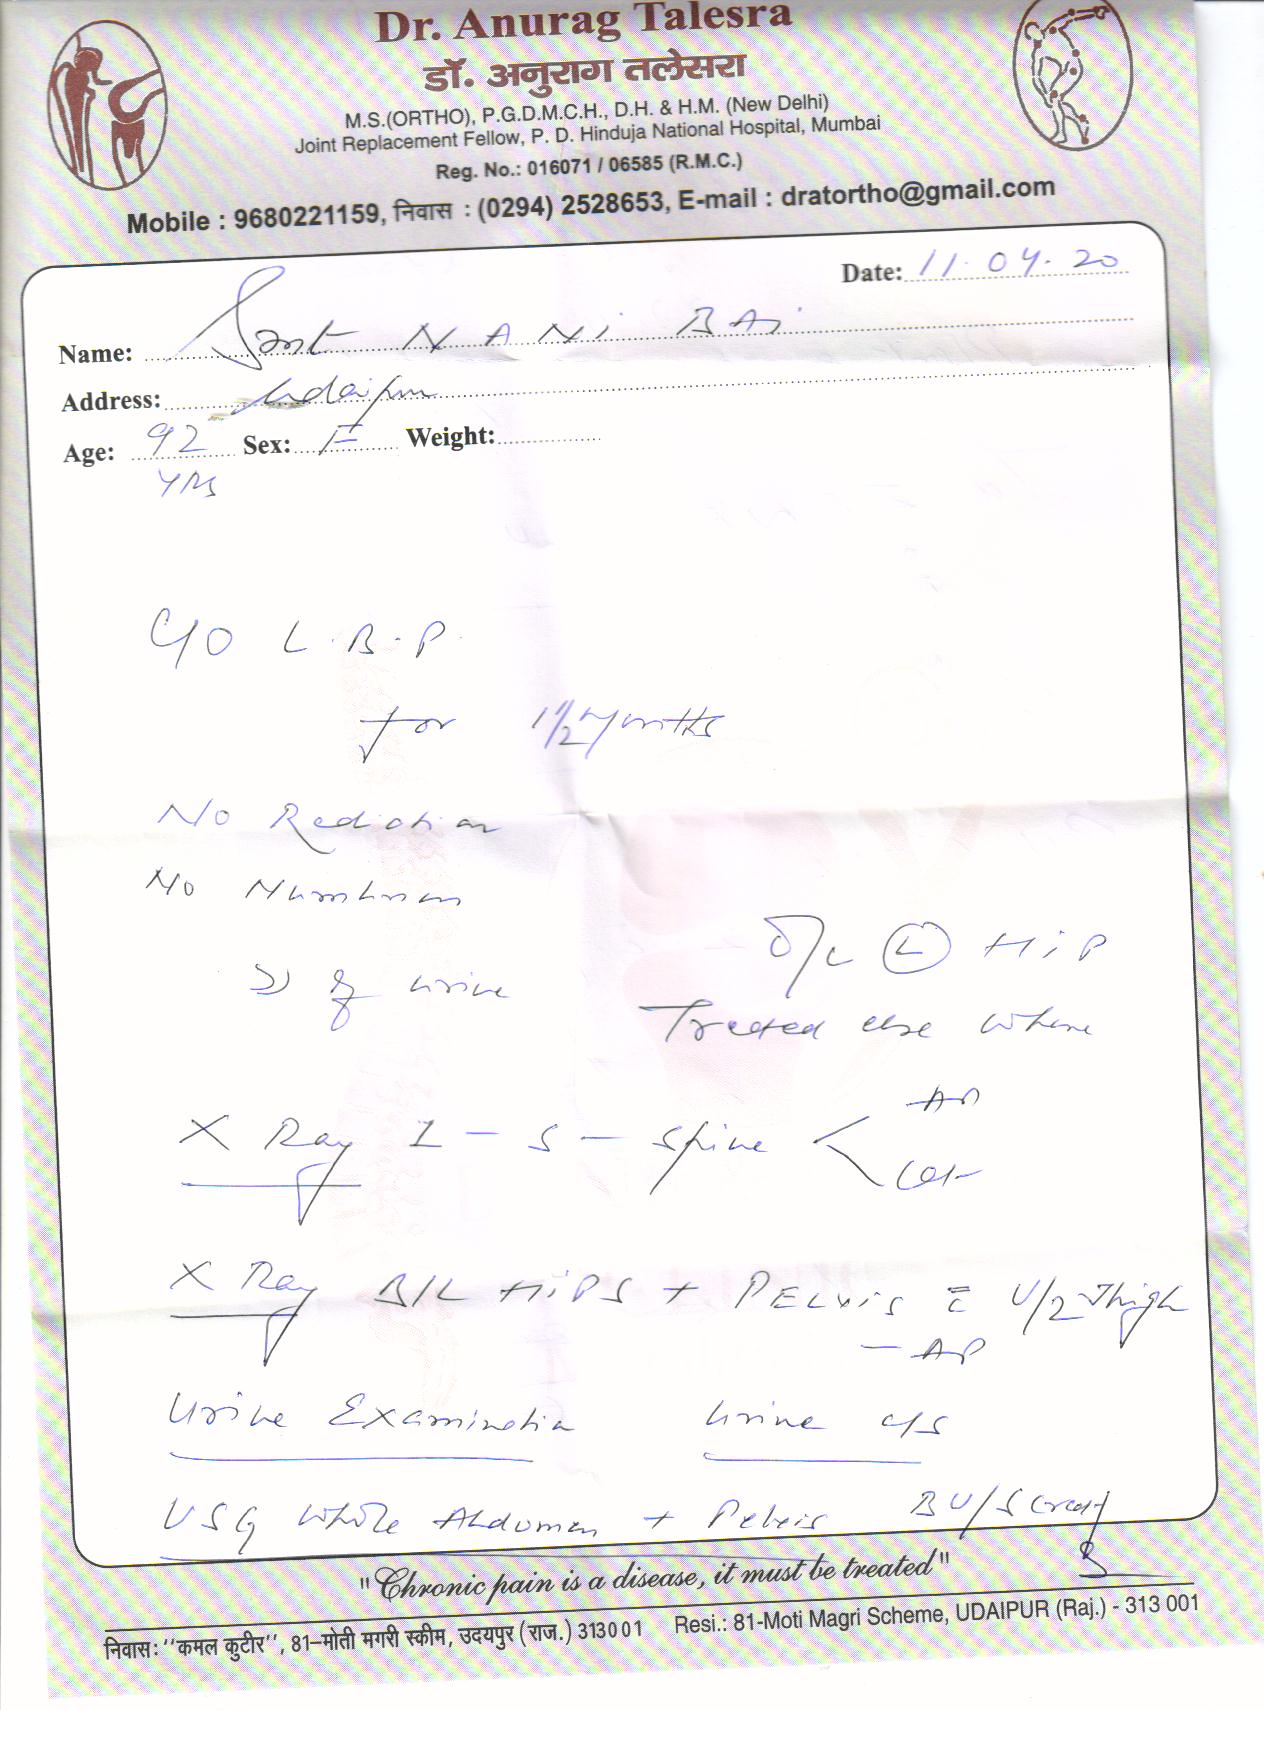 Dr. Anurag Talesra
डॉ. अनुराग तलेसरा
M.S.(ORTHO), P.G.D.M.C.H., D.H. & H.M. (New Delhi)
Joint Replacement Fellow, P. D. Hinduja National Hospital, Mumbai
Reg. No.: 016071 / 06585 (R.M.C.)
Mobile : 9680221159, निवास : (0294) 2528653, E-mail : dratortho@gmail.com
Date: 11.04.20
Name: Smt NANi BAi
Address: Udaipur
Age: 92 Sex: F Weight:
yrs
C/O L.B.P.
for 1 1/2 Months
No Rediation
No Numbness
of urine
(L) HiP
Treated else where
X Ray L-S-Spine < AP
Lat
X Ray B/L HiPS + PELvis c̄ U/2 Thigh
- AP
Urine Examination Urine c/s
USG Whole Abdomen + Pelvis B U/S Creat
"Chronic pain is a disease, it must be treated"
निवास: ''कमल कुटीर'', 81–मोती मगरी स्कीम, उदयपुर (राज.) 313001 Resi.: 81-Moti Magri Scheme, UDAIPUR (Raj.) - 313 001